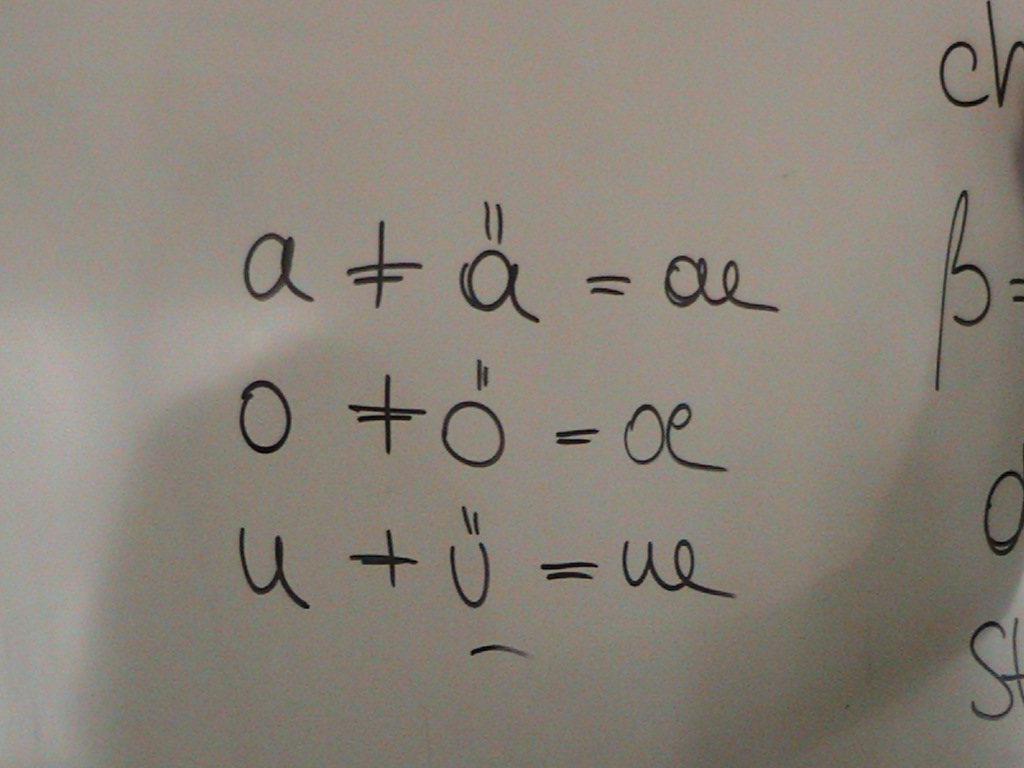 a ≠ ä = ae
o ≠ ö = oe
u + ü = ue
ch
β =
st